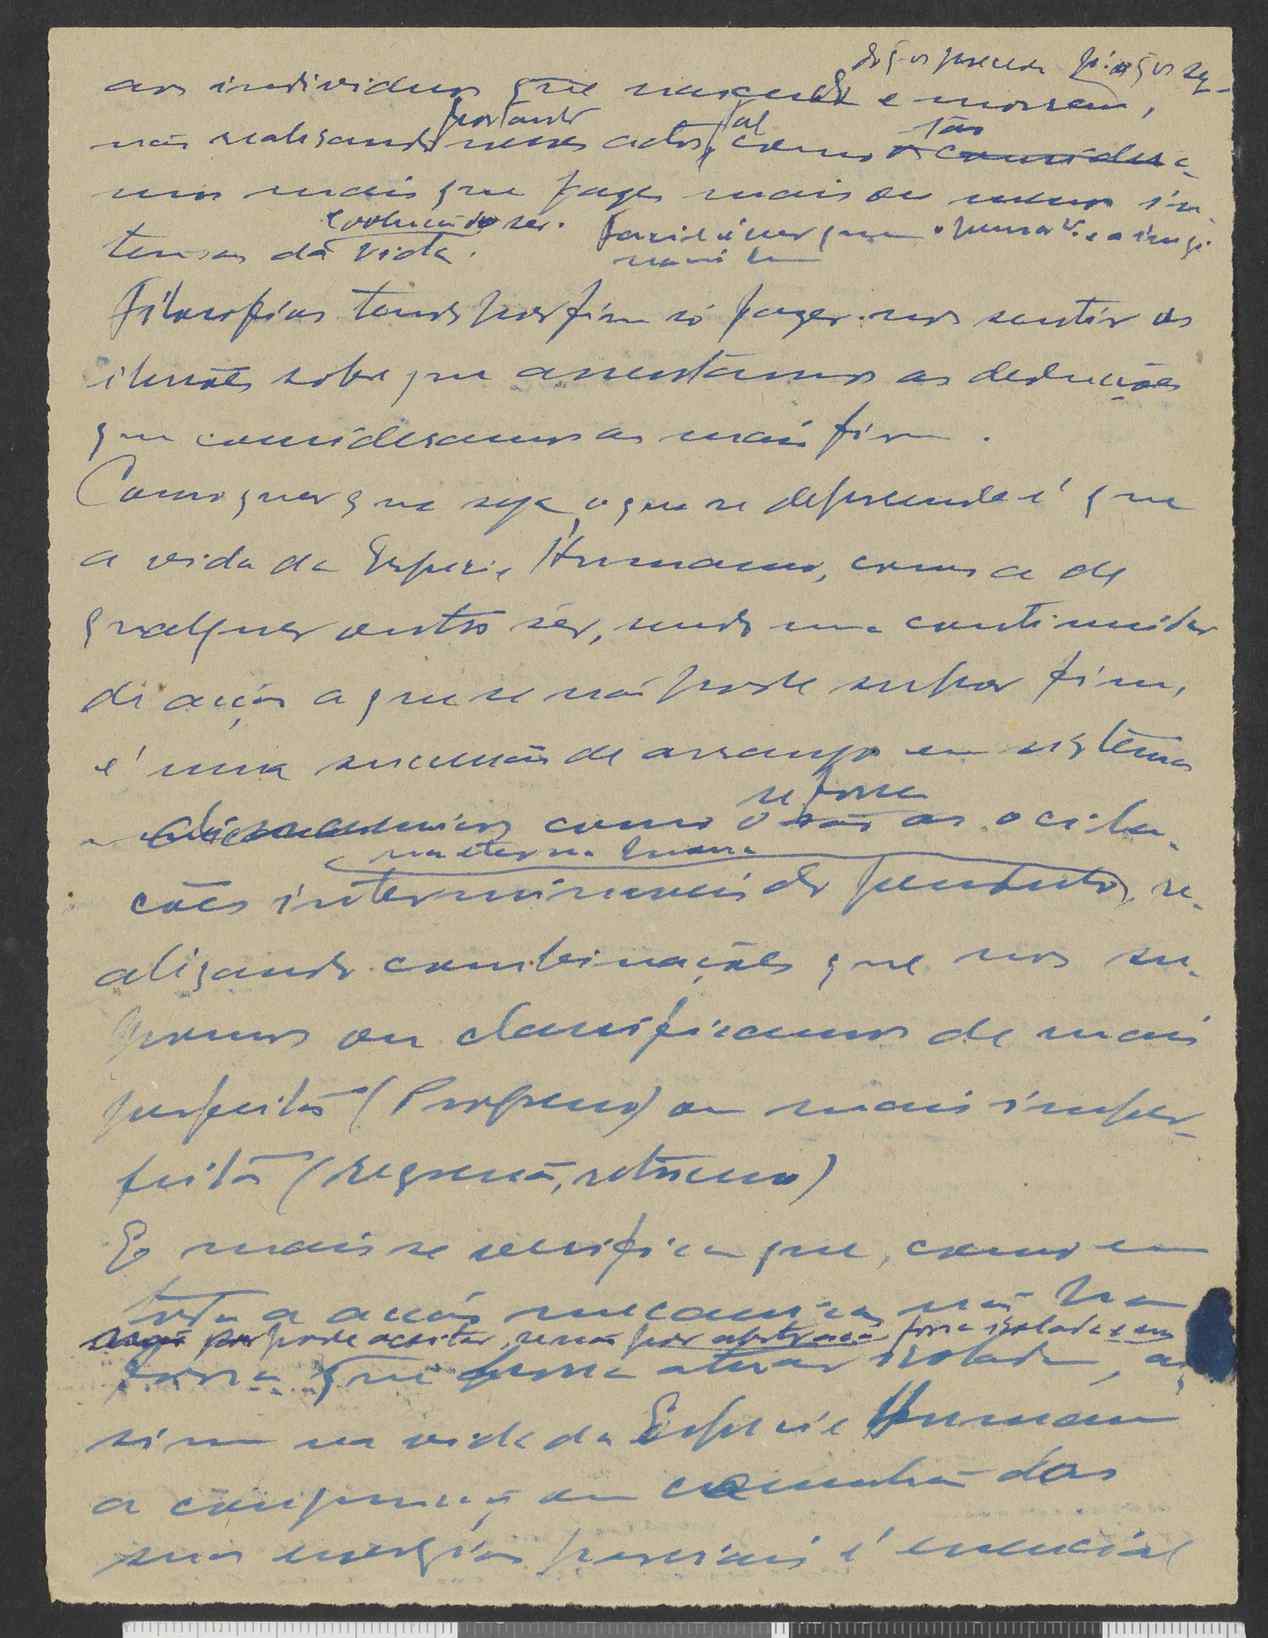 aos individuos que nascem e morrem,
não realisando portanto nesses actos, tal como são
mos mais que fazes mais ou menos in-
tensas da vida. evolução do ser.
Filosofias tendo por fim só fazer-nos sentir as
ilusões sobre que assentamos as deduções
que consideramos as mais firmes.
Como quer que seja, o que se depreende é que
a vida da Especie Humana, como a de
qualquer outro sêr, sendo uma continuidade
de acção a que se não pode supor fim,
é uma sucessão de arranjos em sistemas
como se fosse as oscila-
ções interminaveis do pendulo, re-
alizando combinações que nos su-
pomos ou classificamos de mais
perfeitas (Progresso) ou mais imper-
feitas (regressão, retrocesso)
E mais se verifica que, como em
toda a acção mecanica não ha
pode aceitar, senão por abstração força isolada
força que possa atuar isolada, as-
sim na vida da Especie Humana
a conjunção ou comunhão das
suas energias parciais é essencial